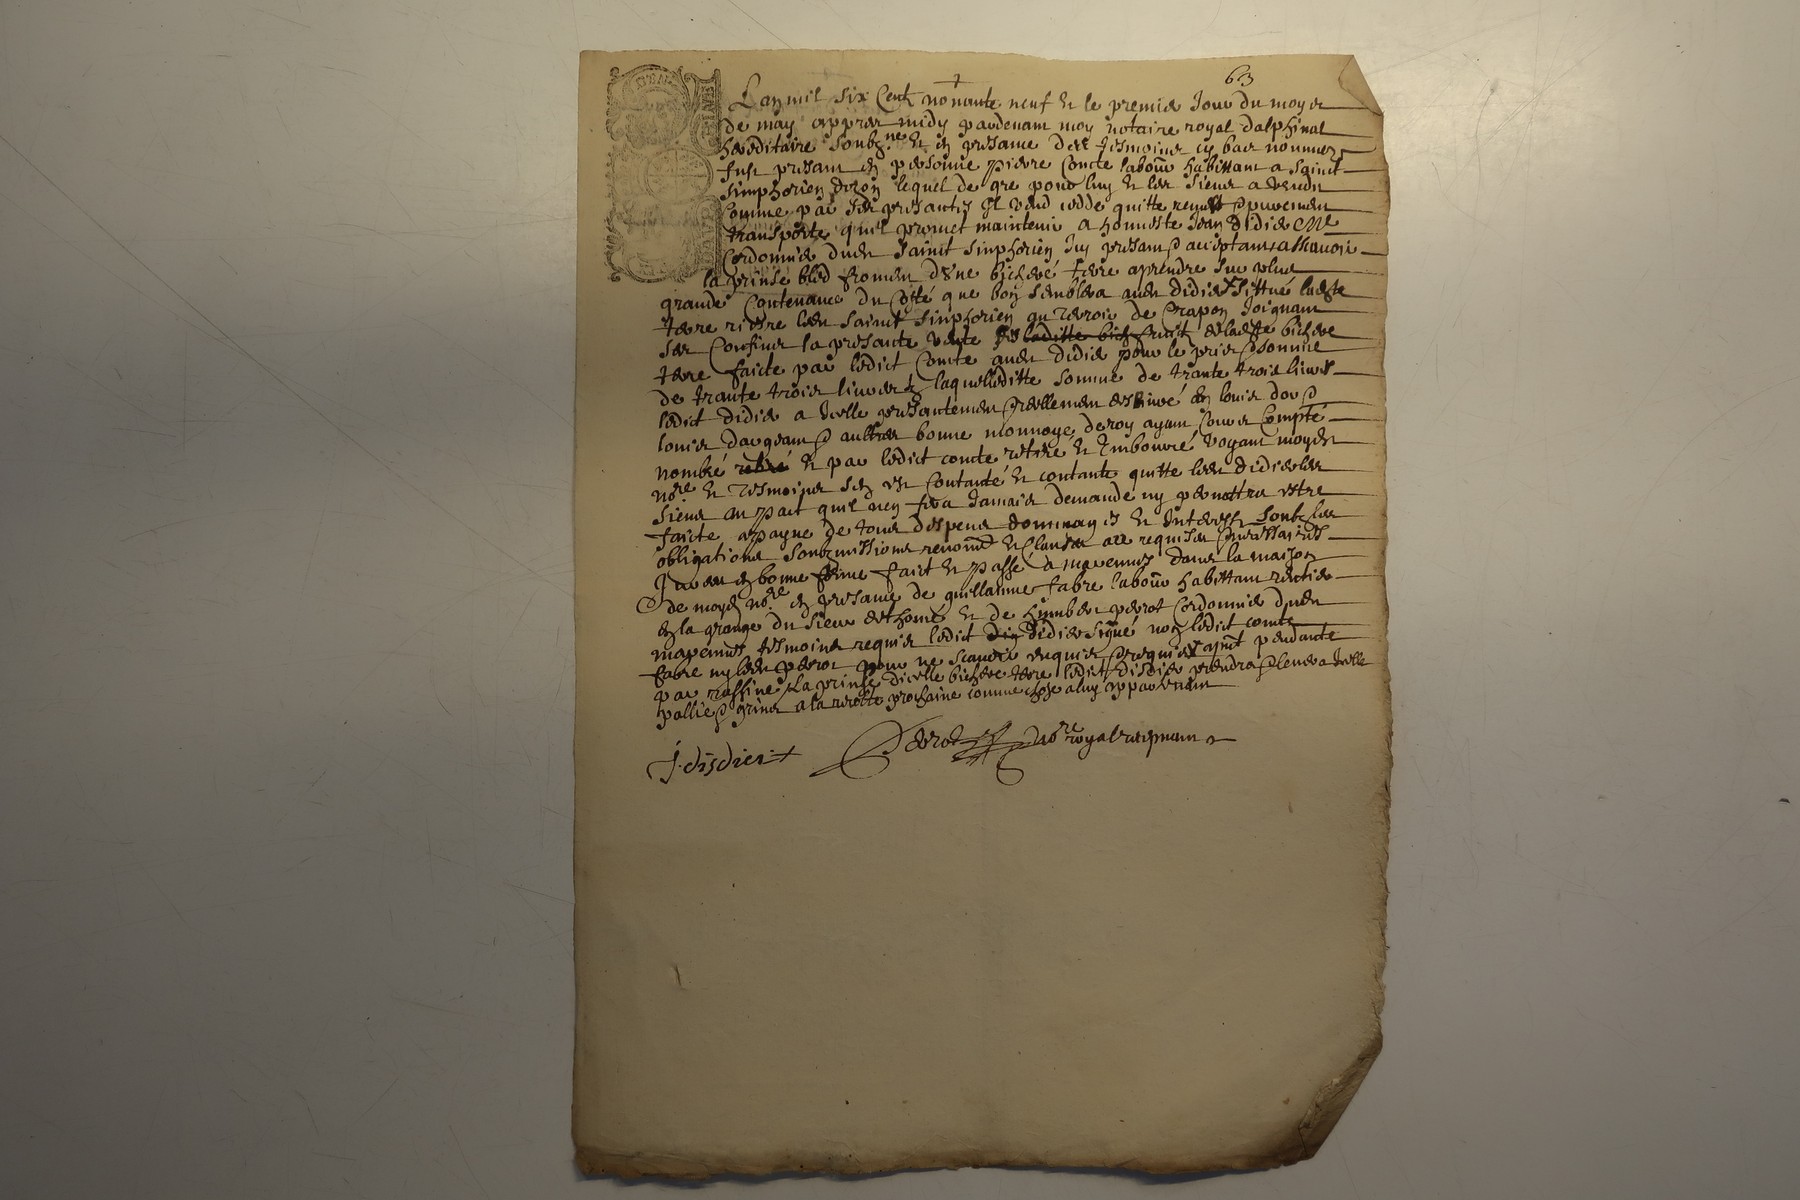 63
Lan mil six Centz nonante neuf et le premier Jour du moys
de may appres midy pardevant moy notaire royal dalphinal
hereditaire soubz.ne et en presance des tesmoins cy bas nommez
fust presant en personne pierre Comte labour habittant a Sainct
simphorien dozon lequel de gre pour luy et les siens a vendu
Comme par ses presantes Il vend cedde quitte remet purement
transporte quil promet maintenir a honneste Jean Didier me
Cordonnier dudit Saint Simphorien Icy presant acceptant assavoir
la prinse bled froment dune bicheré terre a prendre sur plus
grande Contenance du Cotté que bon semblera audit didier sittué ladte
terre riere ledit Saint Simphorien au terroir de Crapon Joignant
ses Confins la presante vente laditte bich fruitz de ladte bichere
terre faicte par ledict Comte audit Didier pour le prix somme
de trante trois livres laquelleditte somme de trante trois livres
ledict didier a Icelle presantement reellement deslivré en louis dor
louis dargent aultres bonne monnoye de roy ayant Cours Compté
nombré et par ledict comte retiré et Emboursé voyant moydit
nore et tesmoins sen est Contanté et contante quitte ledit didier les
siens au pact quil nen fera Jamais demande ny permettra estre
faicte a payne de tous despens dommages et Interestz soubz les
obligations soubmissions renonce et Clauses requises necessaires
en bonne forme faict et passé a mavennes dans la maison
de moydit nore en presance de guillaume fabre labour habittant
en la grange du sieur dethomé et de humbert perrot Cordonnier dudit
mavennes tesmoins requis ledict didier signé non ledict comte
fabre ny ledit perrot pour ne scavoir enquis requis pendante
par raffine la prinse dicelle bichere terre ledict Didier prendra levera Icelle
pallie grins a la recolte prochaine comme chose a luy appartenant
J. disdier
Perrot nore royal